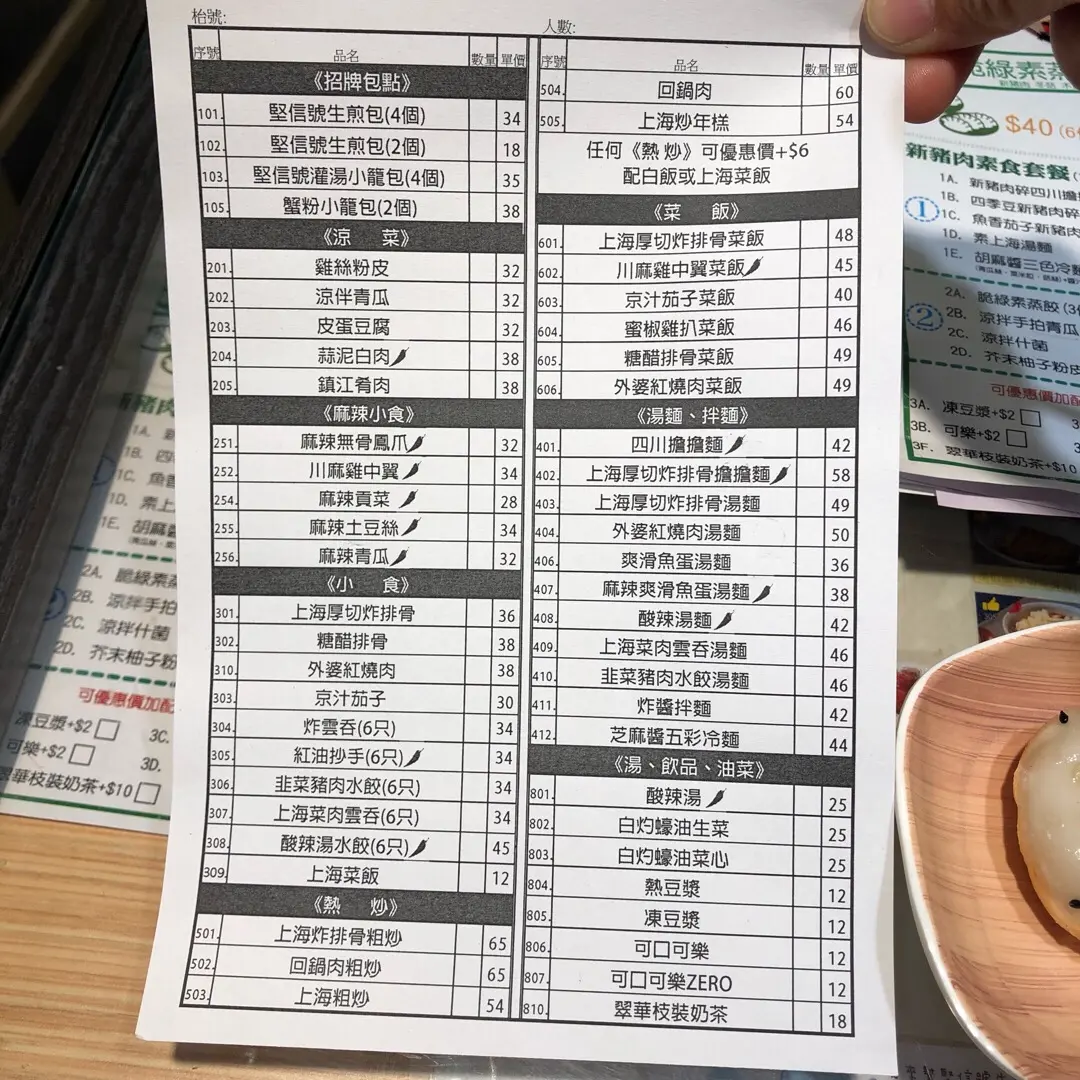 枱號:
人數:
序號 品名 數量 單價
《招牌包點》
101. 堅信號生煎包(4個) 34
102. 堅信號生煎包(2個) 18
103. 堅信號灌湯小龍包(4個) 35
105. 蟹粉小龍包(2個) 38
《涼 菜》
201. 雞絲粉皮 32
202. 涼伴青瓜 32
203. 皮蛋豆腐 32
204. 蒜泥白肉 38
205. 鎮江肴肉 38
《麻辣小食》
251. 麻辣無骨鳳爪 32
252. 川麻雞中翼 34
254. 麻辣貢菜 28
255. 麻辣土豆絲 34
256. 麻辣青瓜 32
《小 食》
301. 上海厚切炸排骨 36
302. 糖醋排骨 38
310. 外婆紅燒肉 38
303. 京汁茄子 30
304. 炸雲吞(6只) 34
305. 紅油抄手(6只) 34
306. 韭菜豬肉水餃(6只) 34
307. 上海菜肉雲吞(6只) 34
308. 酸辣湯水餃(6只) 45
309. 上海菜飯 12
《熱 炒》
501. 上海炸排骨粗炒 65
502. 回鍋肉粗炒 65
503. 上海粗炒 54
序號 品名 數量 單價
504. 回鍋肉 60
505. 上海炒年糕 54
任何《熱炒》可優惠價+$6
配白飯或上海菜飯
《菜 飯》
601. 上海厚切炸排骨菜飯 48
602. 川麻雞中翼菜飯 45
603. 京汁茄子菜飯 40
604. 蜜椒雞扒菜飯 46
605. 糖醋排骨菜飯 49
606. 外婆紅燒肉菜飯 49
《湯麵、拌麵》
401. 四川擔擔麵 42
402. 上海厚切炸排骨擔擔麵 58
403. 上海厚切炸排骨湯麵 49
404. 外婆紅燒肉湯麵 50
406. 爽滑魚蛋湯麵 36
407. 麻辣爽滑魚蛋湯麵 38
408. 酸辣湯麵 42
409. 上海菜肉雲吞湯麵 46
410. 韭菜豬肉水餃湯麵 46
411. 炸醬拌麵 42
412. 芝麻醬五彩冷麵 44
《湯、飲品、油菜》
801. 酸辣湯 25
802. 白灼蠔油生菜 25
803. 白灼蠔油菜心 25
804. 熱豆漿 12
805. 凍豆漿 12
806. 可口可樂 12
807. 可口可樂ZERO 12
810. 翠華枝裝奶茶 18
綠素蒸
$40
新豬肉素食套餐
1
1A. 新豬肉碎四川擔
1B. 四季豆新豬肉碎
1C. 魚香茄子新豬肉
1D. 素上海湯麵
1E. 胡麻醬三色冷麵
2
2A. 脆綠素蒸餃
2B. 涼拌手拍青瓜
2C. 涼拌什菌
2D. 芥末柚子粉皮
可優惠價加配
3A. 凍豆漿+$2
3B. 可樂+$2
3F. 翠華枝裝奶茶+$10
豬肉
1A. 新
1B. 四
1C. 魚
1D. 素上
1E. 胡麻
2A. 脆綠素
2B. 涼拌手拍
2C. 涼拌什菌
2D. 芥末柚子粉
可優惠價加配
凍豆漿+$2
3C.
可樂+$2
3D.
華枝裝奶茶+$10